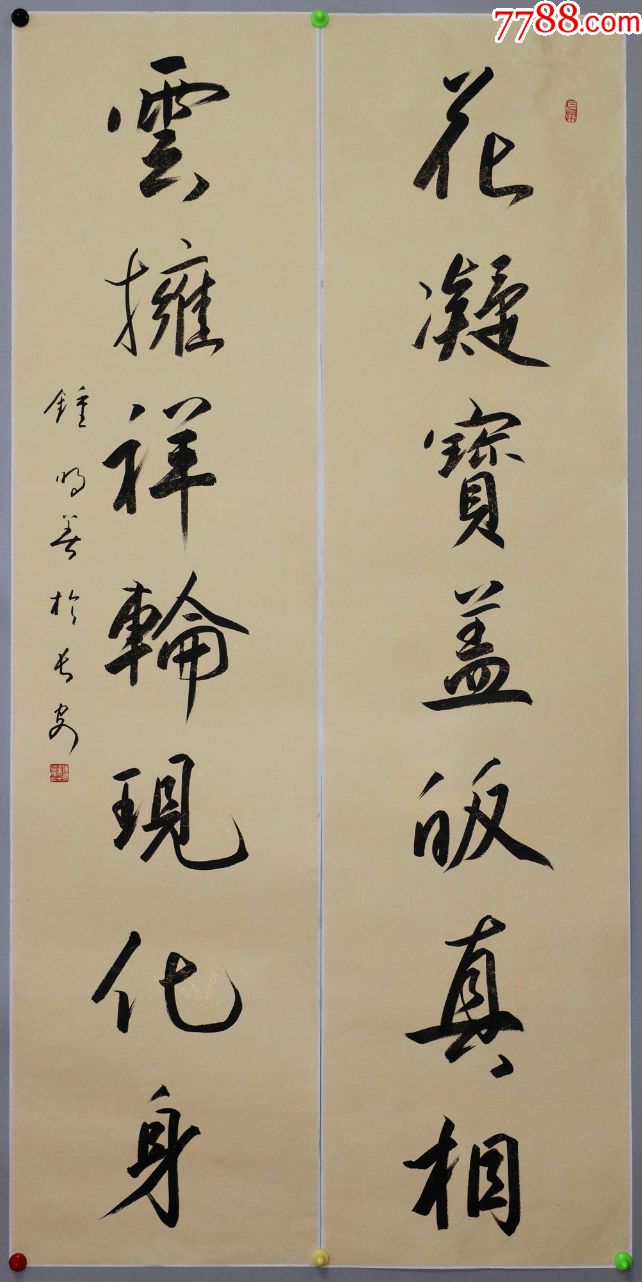 7788.com
花凝寶盖皈真相
雲擁祥輪現化身
鍾明善於长安